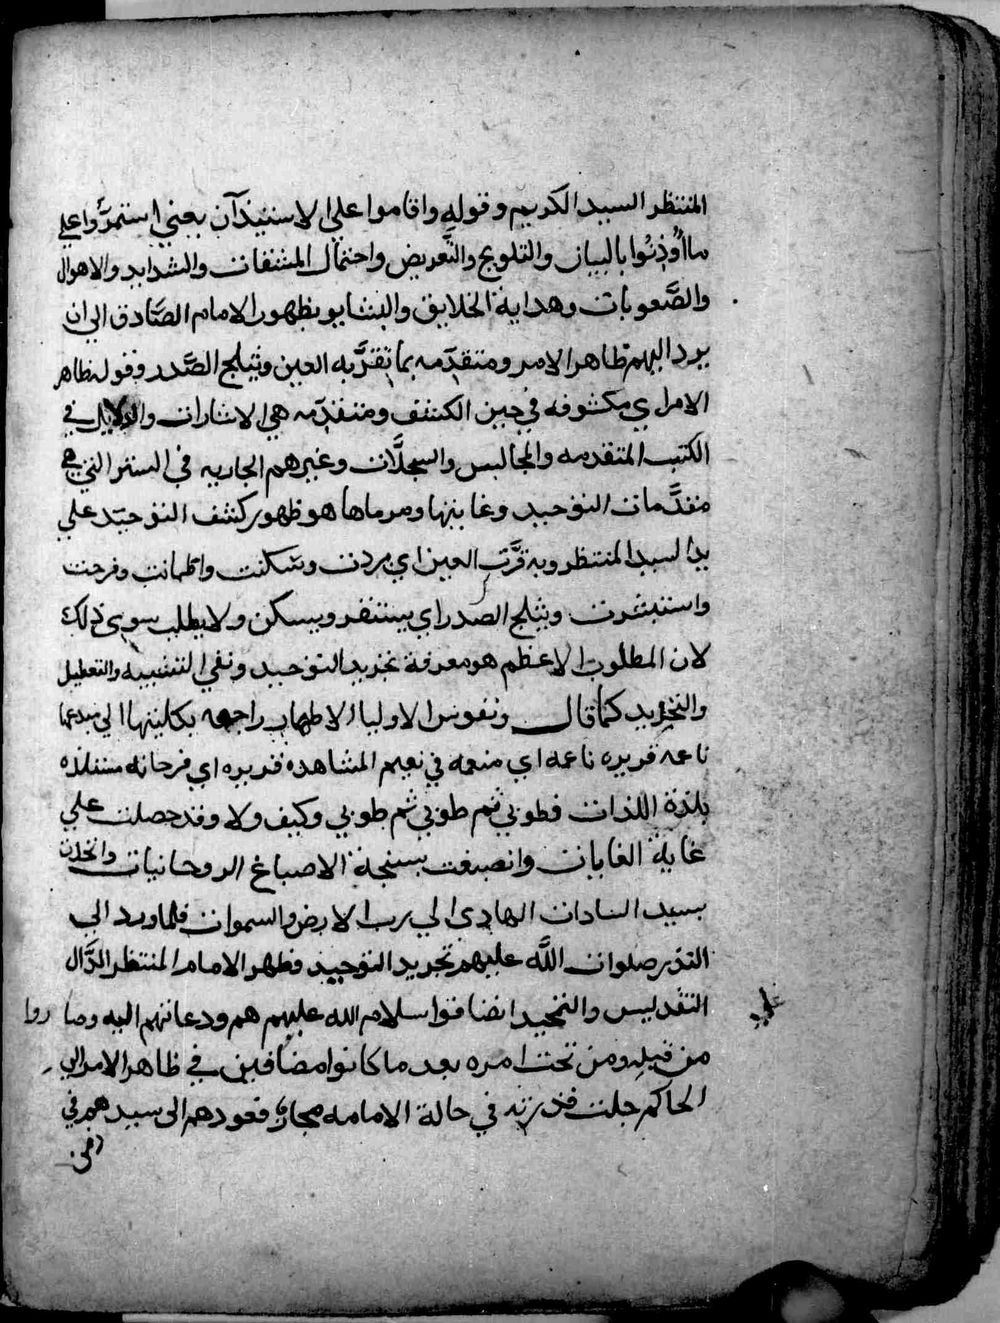 المنتظر السيد الكريم وقوله واقاموا على الاستيذآن يعني استمرّوا على
ما اُوذِنُوا بالبيان والتلويح والتَّعريض واحتمال المشقات والشدايد والاهوال
والصَّعوبات وهداية الخلايق والبشاير بظهور الامام الصَّادق الى ان
يرد اليهم ظاهر الامر ومتقدّمه بما تقرَّبه العين ويثلج الصَّدر وقوله ظاهر
الامر اي مكشوفه في حين الكشف ومتقدّمه هي الاشارات والدلايل في
الكتب المتقدمه والمجالس والسجلَّات وغيرهم الجاريه في الستر التي هي
مقدَّمات التوحيد وغايتها ومرماها هو ظهور كشف التوحيد على
يد السيد المنتظر وبه قرَّت العين اي بردت وسكنت واطمانت وفرحت
واستبشرت ويثلج الصدر اي يستقر ويسكن ولا يطلب سوى ذلك
لان المطلوب الاعظم هو معرفة تجريد التوحيد ونفي التشبيه والتعطيل
والتجريد كما قال ونفوس الاوليا الاطهار راجعه بكليتها الى مبدعها
ناعمه قريره ناعمه اي منعمه في نعيم المشاهده قريره اي فرحانه ستلذه
بلذة اللذات فطوبى ثم طوبى ثم طوبى وكيف ولا وقد حصلت على
غاية الغايات وانصبغت بسنجة الاصباغ الروحانيات واتحدت
بسيد السادات الهادى الى رب الارض والسموات فلما ورد الى
النذر صلوات اللَّه عليهم تجريد التوحيد وظهر الامام المنتظر الدَّال
على
التقديس والتمجيد انضافوا سلام الله عليهم هم ودعاتهم اليه وصاروا
من قبله ومن تحت امره بعد ما كانوا مضافين في ظاهر الامر الى
الحاكم جلت قدرته في حالة الامامه مجازا فعودهم الى سيدهم في